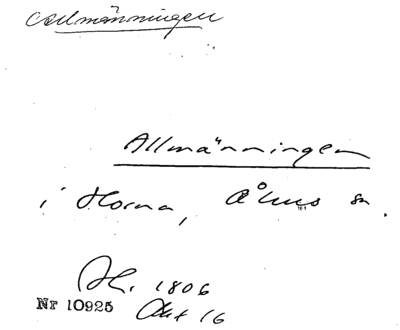 Allmänningen
Allmänningen
i Horna, Åhus sn.
Sk. 1806
Nr 10925 Akt 16